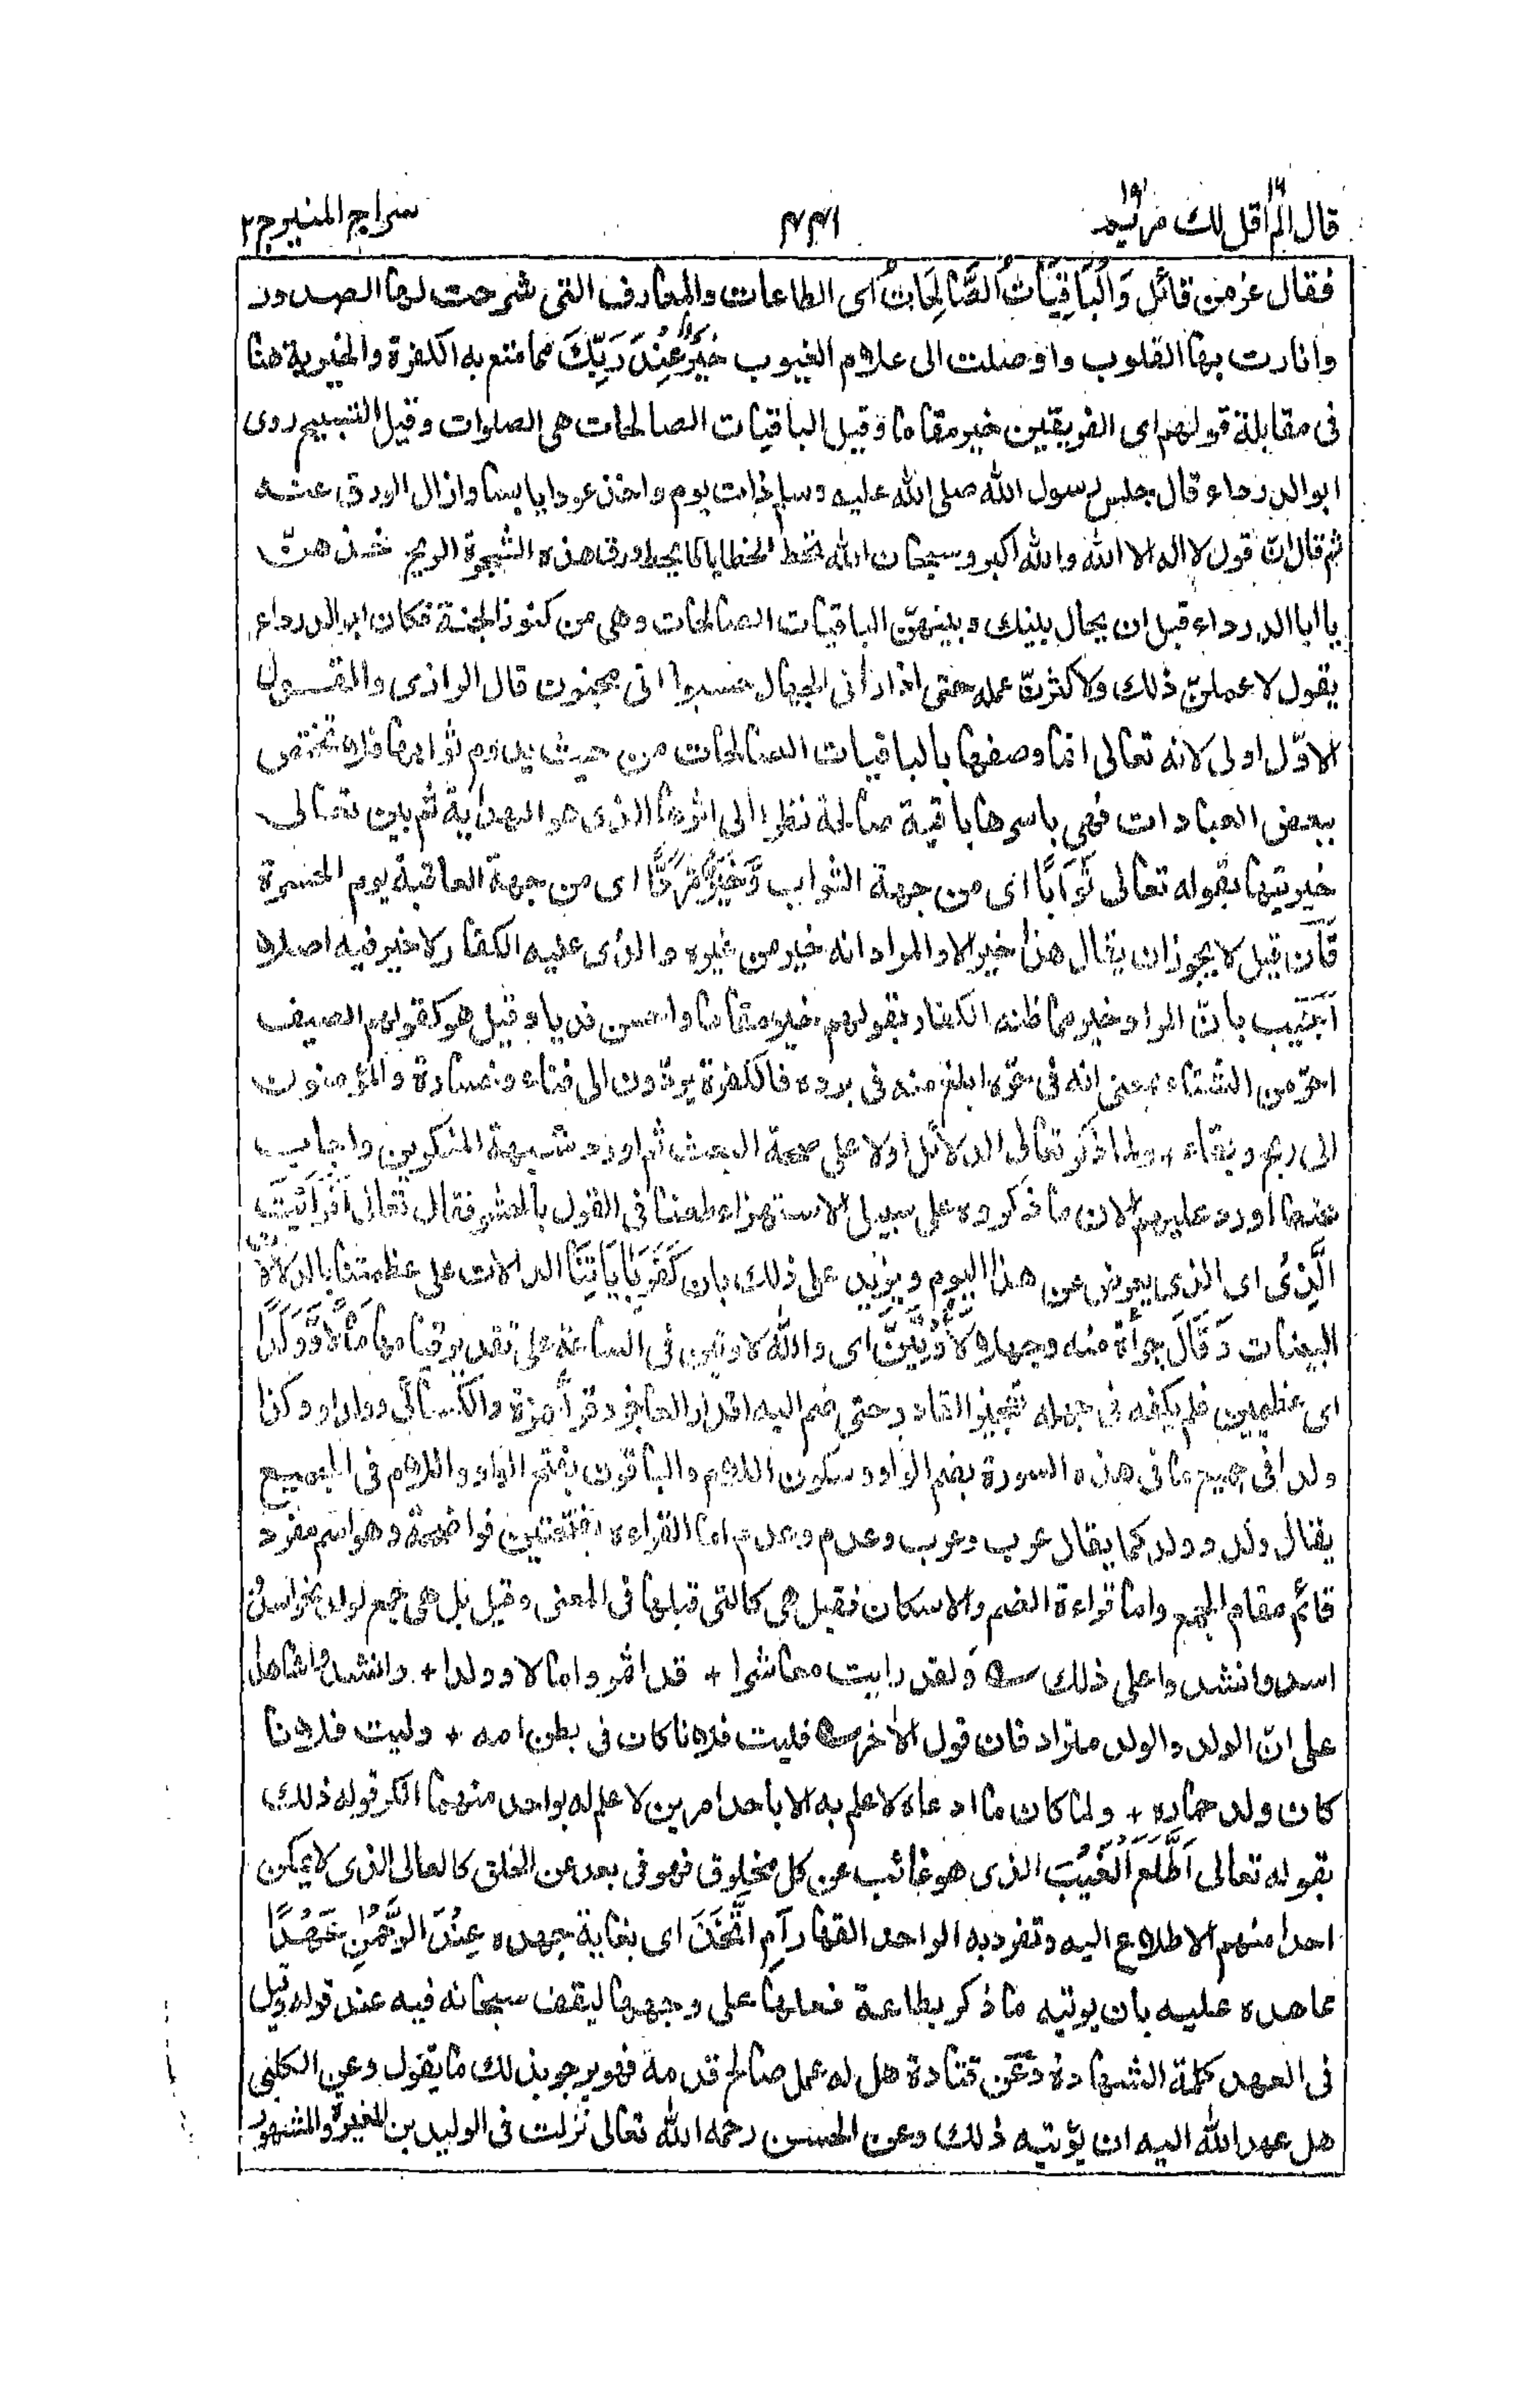 قال الم اقل لك ١٦ مريم ١٩
٤٤١
سراج المنير ج ٢
فقال عز من قائل وَالْبَاقِيَاتُ الصَّالِحَاتُ اى الطاعات والمعارف التى شرحت لها الصدور
وانارت بها القلوب واوصلت الى علام الغيوب خَيْرٌ عِنْدَ رَبِّكَ مما متع به الكفرة والخيرية هنا
فى مقابلة قولهم اى الفريقين خير مقاما وقيل الباقيات الصالحات هى الصلوات وقيل التسبيح روى
ابو الدرداء قال جلس رسول الله صلى الله عليه وسلم ذات يوم واخذ عودا يابسا وازال الورق عنه
ثم قال انّ قول لا اله الا الله والله اكبر وسبحان الله تحط الخطايا كما يحط ورق هذه الشجرة الريح خذهنّ
يا ابا الدرداء قبل ان يحال بينك وبينهنّ الباقيات الصالحات وهى من كنوز الجنة فكان ابو الدرداء
يقول لاعملنّ ذلك ولاكثرنّ عمله حتى اذا رانى الجهال حسبوا انى مجنون قال الرازى والقول
الاوّل اولى لانه تعالى انما وصفها بالباقيات الصالحات من حيث يدوم ثوابها فلا تختص
ببعض العبادات فهى باسرها باقية صالحة نظرا الى اثرها الذى هو الهداية ثم بين تعالى
خيريتها بقوله تعالى ثَوَابًا اى من جهة الثواب وَّخَيْرٌ مَّرَدًّا اى من جهة العاقبة يوم الحسرة
فآن قيل لا يجوز ان يقال هذا خير الا والمراد انه خير من غيره والذى عليه الكفار لا خير فيه اصلا
اجيب بانّ المراد خير مما ظنه الكفار بقولهم خير مقاما واحسن نديا وقيل هو كقولهم الصيف
احرّ من الشتاء بمعنى انه فى حرّه ابلغ منه فى برده فالكفرة يردّون الى فناء وخسارة والمؤمنون
الى ربح وبقاء + ولما ذكر تعالى الدلائل اولا على صحة البعث ثم اورد شبهة المنكرين واجاب
عنها اورد عليهم الان ما ذكروه على سبيل الاستهزاء طعنا فى القول بالحشر فقال تعالى اَفَرَاَيْتَ
الَّذِىْ اى الذى يعرض عن هذا اليوم ويزيد على ذلك بان كَفَرَ بِاٰيَاتِنَا الدالات على عظمتنا بالدلالات
البينات وَقَالَ جرأة منه وجهلا لَاُوْتَيَنَّ اى والله لاوتين فى الساعة على تقدير قيامها مَالًا وَّوَلَدًا
اى عظيمين فلم يكفه فى جهله تعجيز القادر حتى ضم اليه اقدار العاجز وقرأ حمزة والكسائى وولدا وكذا
ولدا فى جميع ما فى هذه السورة بضم الواو وسكون اللام والباقون بفتح الواو واللام فى الجميع
يقال ولد وولد كما يقال عرب وعرب وعدم وعدم اما القراءة بفتحتين فواضحة وهو اسم مفرد
قائم مقام الجمع واما قراءة الضم والاسكان فقيل هى كالتى قبلها فى المعنى وقيل بل هى جمع لولد نحو اسد
اسد وانشدوا على ذلك ولقد رايت معاشرا + قد اثمروا مالا وولدا + وانشدوا شاهدا
على انّ الولد والولد مترادفان قول الآخر فليت فلانا كان فى بطن امه + وليت فلانا
كان ولد حماره + ولما كان ما ادعاه لا علم به الا باحد امرين لا علم له بواحد منهما انكر قوله ذلك
بقوله تعالى اَطَّلَعَ الْغَيْبَ الذى هو غائب عن كل مخلوق فهو فى بعد عن الخلق كالعالى الذى لا يمكن
احدا منهم الاطلاع اليه وتفرد به الواحد القهار اَمِ اتَّخَذَ اى بغاية جهده عِنْدَ الرَّحْمٰنِ عَهْدًا
عاهده عليه بان يوتيه ما ذكر بطاعة فعلها على وجهها ليقف سبحانه فيه عند قوله وقيل
فى العهد كلمة الشهادة وعن قتادة هل له عمل صالح قدمه فهو يرجو بذلك ما يقول وعن الكلبى
هل عهد الله اليه ان يؤتيه ذلك وعن الحسن رحمه الله تعالى نزلت فى الوليد بن المغيرة والمشهور